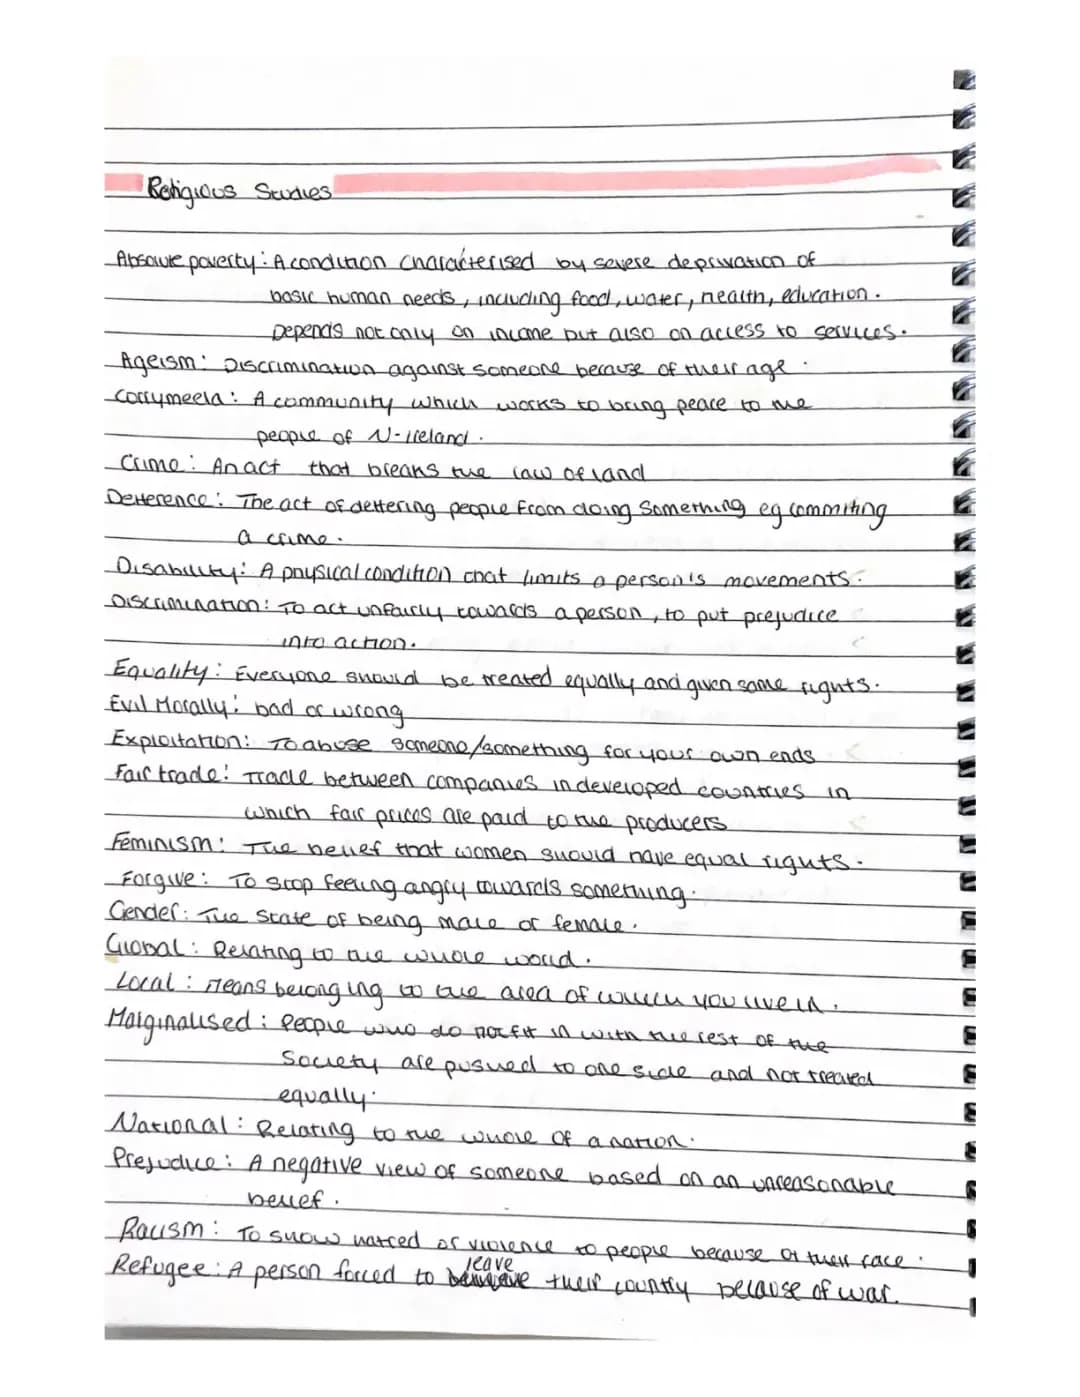 Religious Studies
Absolute poverty: A condition characterised by severe deprivation of
basic human needs, including food, water, health, education.
Depends not only on income but also on access to services.
Ageism: Discrimination against someone because of their age.
Corrymeela: A community which works to bring peace to the
people of N-Ireland.
Crime: An act that breaks the law of land
Detterence: The act of dettering people from doing something eg commiting
a crime.
Disability: A physical condition that limits a person's movements.
Discrimination: To act unfairly towards a person, to put prejudice
into action.
Equality: Everyone should be treated equally and given same rights.
Evil Morally: bad or wrong
Exploitation: To abuse someone/something for your own ends
Fair trade: Trade between companies in developed countries in
which fair prices are paid to the producers
Feminism: The belief that women should have equal rights.
Forgive: To stop feeling angry towards something.
Gender: The state of being male or female.
Global: Relating to the whole world.
Local: Means belonging to the area of which you live in.
Marginalised: People who do not fit in with the rest of the
society are pushed to one side and not treated
equally.
National: Relating to the whole of a nation.
Prejudice: A negative view of someone based on an unreasonable
belief.
Racism: To show hatred or violence to people because of their race.
Refugee: A person forced to leave their country because of war.